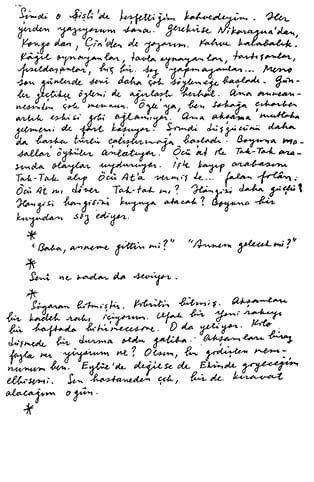 Şimdi o Şişli'de keşfettiğim kahvedeyim. Her
yerden yazıyorum sana. Gerekirse Nikaragua'dan,
Kongo'dan, Çin'den de yazarım. Kahve kalabalık.
Kâğıt oynayanlar, tavla oynayanlar, tartışanlar,
fısıldaşanlar, hiç bir şey yapmayanlar... Memo
son günlerde seni daha çok söylemeğe başladı. Gün-
ler geçtikçe özlemi de ağırlaştı herhal. Ama anneannesinden çok memnun. Öyle ya, ben sokağa çıkarken
artık eskisi gibi ağlamıyor. Ama akşama mutlaka
gelmemi de şart koşuyor. Şimdi düşgücünü daha
da başka türlü çalıştırmağa başladı. Boyuna ma-
sallar öyküler anlatıyor. Öcü At ile Tak-Tak ara-
sında olaylar uyduruyor. İşte kayıp arabasını
Tak-Tak alıp Öcü At'a vermiş te... falan filân.
Öcü At mı döver Tak-tak mı? Hangisi daha güçlü?
Hangisi hangisini kuyuya atacak? Boyuna bir
kuyudan söz ediyor.
*
"Baba, anneme gittin mi?" "Annem gelecek mi?"
*
Seni ne kadar da seviyor.
*
Sigaram bitmiştir. Kibritin bitmiş. Akşamları
bir kadeh rakı, içiyorum. Ufak bir Yeni rakıyı
bir haftada bitiremeceme. O da yetiyor. Kilo
düşmede bir durma oldu galiba. Akşamları biraz
fazla mı yiyorum ne? Olsun, bu gidişten mem-
nunum ben. Eylül'de değilse de Ekimde giyeceğim
elbisemi. Sen hastaneden çık, bir de kıravat
alacağım o gün.
*